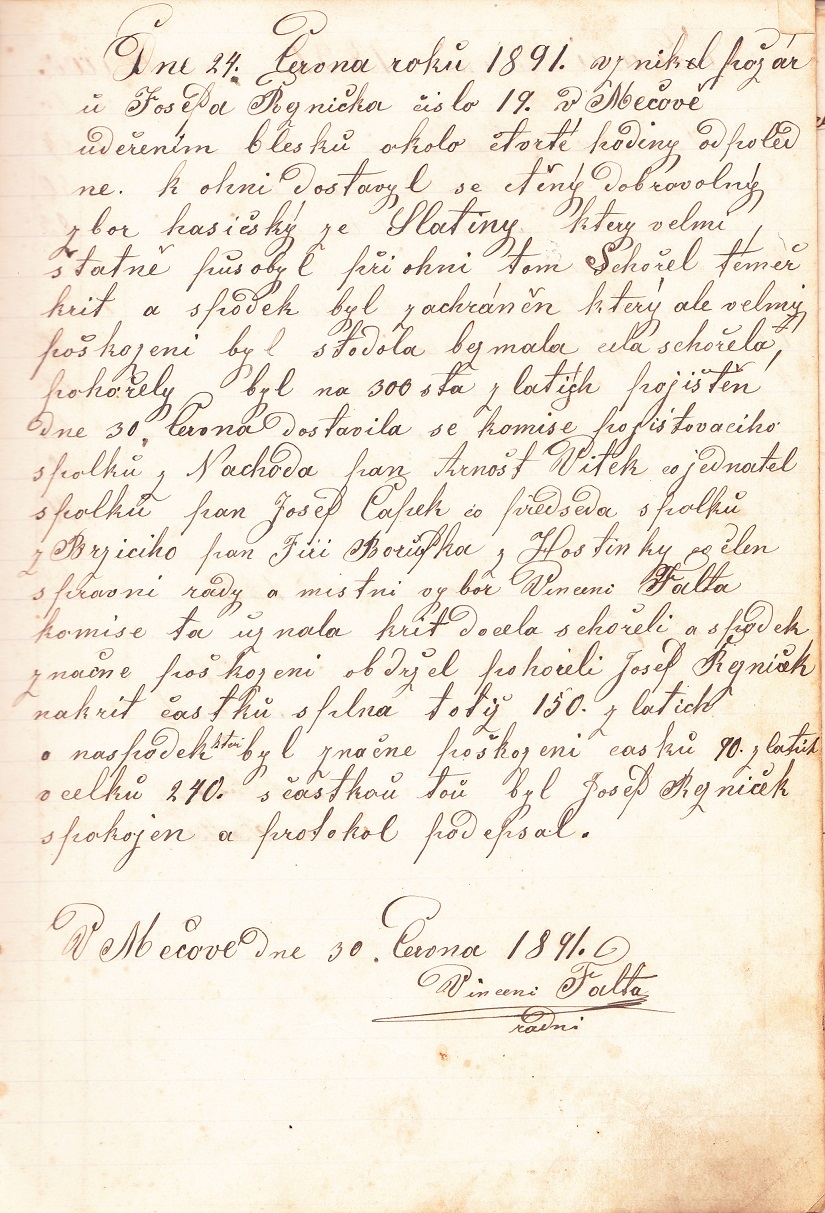 Dne 24. Června roků 1891. vznikl požár
ů Josefa Reznička čislo 19. v Mečově
uděřenim blesků okolo čtvrté hodiny odpoled
ne. k ohni dostavyl se ctěný dobrovolný
zbor hasičský ze Slatiny ktery velmi
štatně působyl při ohni tom Schořel téměř
krit a spodek byl zachráněn který ale velmy
poškozeni byl stodola bezmala cela schořela,
pohořely byl na 300 sta zlatých pojištěn
dne 30. Června dostavila se komise pojišťovaciho
spolků z Nachoda pan Arnošt Vitek co jednatel
spolků pan Josef Čapek co předseda spolků
z Brziciho pan Jiři Borůfka z Hostinky co člen
spravni rady a mistni vybor Vincenc Falta
komise ta ůznala krit docela schořeli a spodek
značne poškozeni obdržel pohořeli Josef Řezniček
nakrit častků splna totiž 150. zlatich
o naspodek kteri byl značne poškozeni časků 90. zlatich
v celků 240. s častkou toů byl Josef Rezniček
spokojen a protokol podepsal.
V Mečově dne 30. Června 1891.
Vincenc Falta
radni